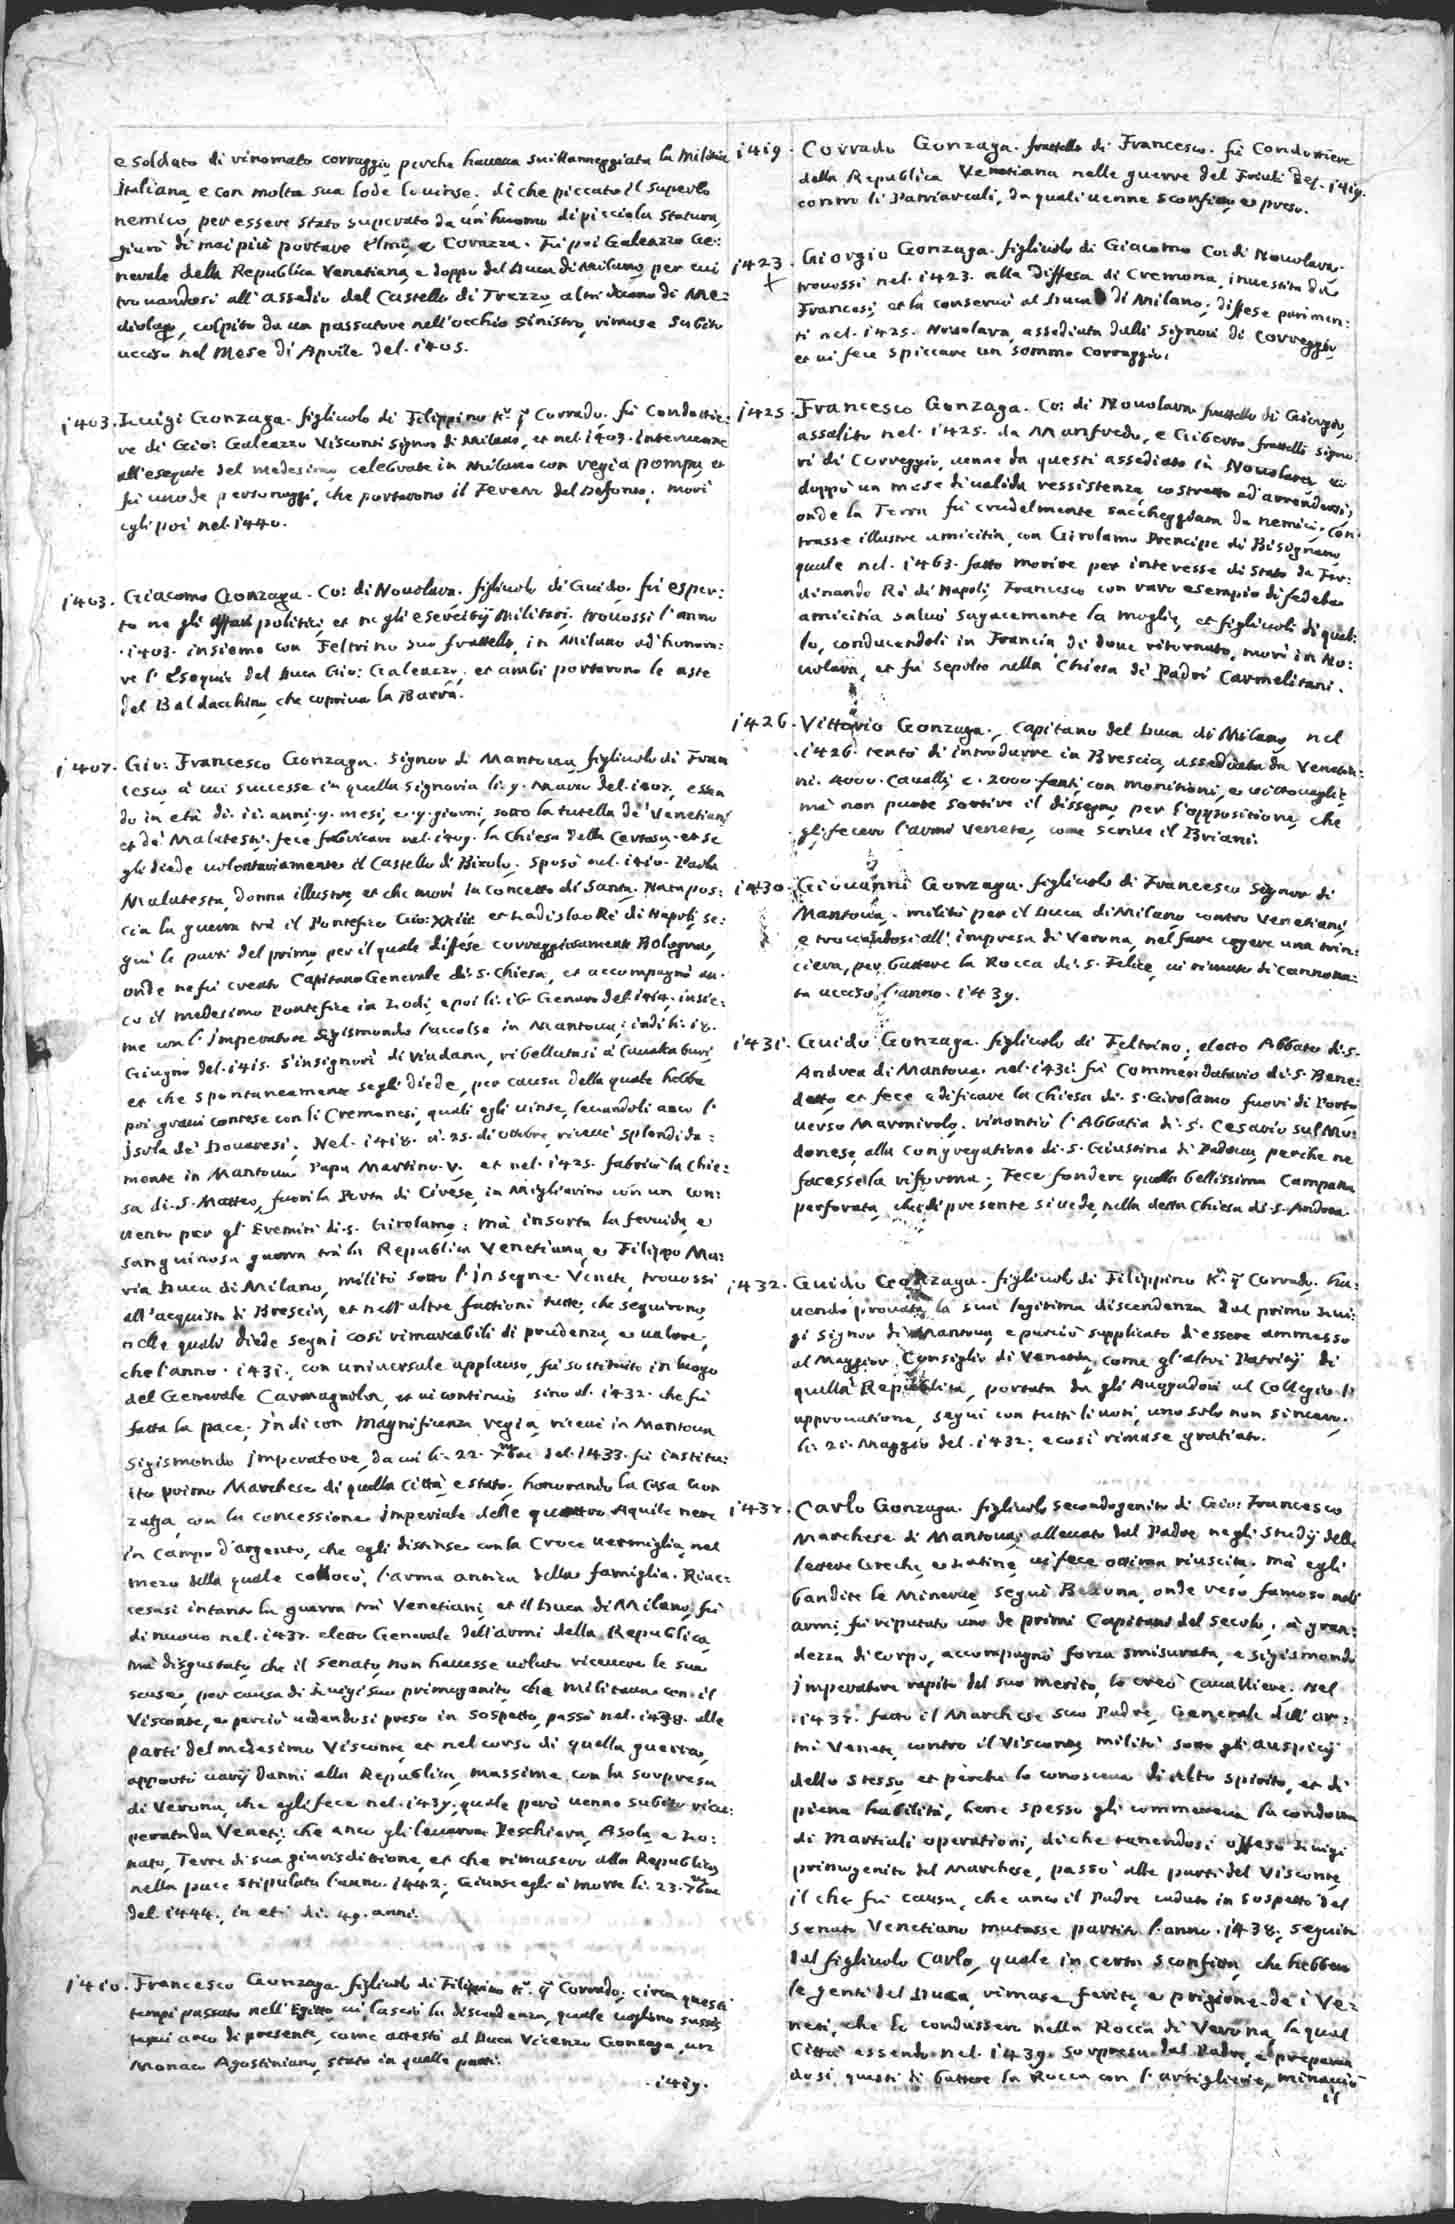 e soldato di rinomato corraggio, perche haueua suillanneggiata la Militia
Italiana, e con molta sua lode lo uinse; di che piccato il superbo
nemico, per essere stato superato da un'huomo di picciola statura,
giurò di mai più portare elmo, e Corazza. Fù poi Galeazzo Ge:
nerale della Republica Venetiana, e doppo del Duca di Milano, per cui
trouandosi all'assedio del Castello di Trezzo, altri dicono di Me:
diolago, colpito da un passatore nell'occhio sinistro, rimase subito
ucciso nel Mese di Aprile del. 1405.
1403. Luigi Gonzaga. figliuolo di Filippino Kr. q Corrado, fù Condottie:
re di Gio: Galeazzo Visconti Signor di Milano, et nel. 1403. interuenne
all'esequie del medesimo, celebrate in Milano con regia pompa, et
fù uno de personaggi, che portarono il Feretro del Defonto; morì
egli poi nel. 1440.
1403. Giacomo Gonzaga. Co: di Nouolara. figliuolo di Guido. fù esper:
to ne gli affari politici, et ne gli esercitij Militari. trouossi l'anno
.1403. insieme con Feltrino suo frattello, in Milano ad honora:
re l'Esequie del Duca Gio: Galeazzo; et ambi portarono le aste
del Baldacchino, che copriua la Barra.
1407. Gio: Francesco Gonzaga. Signor di Mantoua, figliuolo di Fran
cesco, à cui successe in quella Signoria li. 9. Marzo del. 1407, essen
do in età di. 11. anni. 9. mesi, e. 9. giorni, sotto la tutella de' Venetiani
et de' Malatesti; fece fabricare nel. 1409. la Chiesa della Certosa, et se
gli diede uolontariamente il Castello di Bizolo. sposò nel. 1410. Paola
Malatesta, donna illustre, et che morì in concetto di Santa. Nata pos:
cia la guerra trà il Pontefice Gio: XXIII. et Ladislao Rè di Napoli, se:
guì le parti del primo, per il quale diffese corraggiosamente Bologna,
onde ne fù creato Capitano Generale di. S. Chiesa, et accompagnò an:
co il medesimo Pontefice in Lodi, e poi li. 16. Genaro del. 1414. insie:
me con l'Imperatore Sigismondo l'accolse in Mantoua; indi li. 18.
Giugno del. 1415. s'insignorì di Viadana, ribellatasi à Caualcabuoi,
et che spontaneamente se gli diede, per causa della quale hebbe
poi graui contese con li Cremonesi, quali egli uinse, leuandoli anco l'
Isola de' Douaresi; Nel. 1418. à. 25. di Ottobre, riceuè splendida:
mente in Mantoua Papa Martino. V. et nel. 1425. fabricò la Chie:
sa di. S. Matteo, fuori la Porta di Cerese, in Migliarino con un con:
uento per gl'Eremiti di. S. Girolamo: mà, insorta la feruida, e
sanguinosa guerra trà la Republica Venetiana, e Filippo Ma:
ria Duca di Milano, militò sotto l'Insegne Venete, trouossi
all'acquisto di Brescia, et nell'altre fattioni tutte, che seguirono,
nelle quali diede segni così rimarcabili di prudenza, e ualore,
che l'anno. 1431, con uniuersale applauso, fù sostituito in luogo
del Generale Carmagnola, et ui continuò sino al. 1432. che fù
fatta la pace; Indi con Magnificenza regia, riceuì in Mantoua
Sigismondo Imperatore, da cui li. 22. 7mbre del. 1433. fù institu:
ito primo Marchese di quella Città, e stato, honorando la casa Gon
zaga, con la concessione imperiale delle quattro Aquile nere
in campo d'argento, che egli distinse con la Croce uermiglia, nel
mezo della quale collocò, l'arma antica della famiglia. Riac:
cesasi intanto la guerra trà Venetiani, et il Duca di Milano, fù
di nuouo nel. 1437. eletto Generale dell'armi della Republica,
mà disgustato, che il Senato non hauesse uoluto riceuere le sue
scuse, per causa di Luigi suo primogenito, che militaua con il
Visconte, e perciò uedendosi preso in sospetto, passò nel. 1438. alle
parti del medesimo Visconte, et nel corso di quella guerra,
apportò uarij danni alla Republica, massime con la sorpresa
di Verona, che egli fece nel. 1439, quale però uenne subito ricu:
perata da Veneti, che anco gli leuarono Peschiera, Asola, e Lo:
nato, Terre di sua giurisdittione, et che rimasero alla Republica,
nella pace stipulata l'anno. 1442. Giunse egli à morte li. 23. 7mbre
del. 1444, in età di. 49. anni.
1410. Francesco Gonzaga. figliuolo di Filippino Kr. q Corrado; circa questi
tempi passato nell'Egitto, ui lasciò la discendenza, quale uogliono sussis
ta anco di presente, come attestò al Duca Vicenzo Gonzaga, un
Monaco Agostiniano, stato in quelle parti.
.1419.
1419. Corrado Gonzaga. frattello di Francesco. fù Condottiere
della Republica Venetiana nelle guerre del Friuli del. 1419.
contro li Patriarcali, da quali uenne sconfitto, e preso.
1423. Giorgio Gonzaga. figliuolo di Giacomo Co: di Nouolara.
trouossi nel. 1423. alla diffesa di Cremona, inuestita da
Francesi, et la conseruò al Duca di Milano; diffese parimen:
ti nel. 1425. Nouolara, assediata dalli Signori di Correggio,
et ui fece spiccare un sommo Corraggio.
1425. Francesco Gonzaga. Co: di Nouolara frattello di Giorgio,
assalito nel. 1425. da Manfredo, e Giberto frattelli Signo:
ri di Correggio, uenne da questi assediato in Nouolara, e
doppò un mese di ualida ressistenza, costretto ad arrendersi,
onde la Terra fù crudelmente saccheggiata da nemici. Con
trasse illustre amicitia, con Girolamo Prencipe di Bisignano,
quale nel. 1463. fatto morire per interesse di stato da Fer:
dinando Rè di Napoli, Francesco con raro esempio di fedele
amicitia saluò sagacemente la moglie, et figliuoli di quel:
lo, conducendoli in Francia, di doue ritornato, morì in No:
uolara, et fù sepolto nella Chiesa di Padri Carmelitani.
1426. Vittorio Gonzaga, Capitano del Duca di Milano, nel
.1426. tentò di introdurre in Brescia, assediata da Venetia:
ni. 4000. Caualli, e. 2000. fanti, con monitioni, e uittouaglie,
mà non puote sortire il dissegno, per l'oppositione, che
gli fecero l'armi Venete, come scriue il Briani.
1430. Giouanni Gonzaga. figliuolo di Francesco Signor di
Mantoua. militò per il Duca di Milano contro Venetiani,
e trouandosi all'impresa di Verona, nel fare ergere una trin:
ciera, per battere la Rocca di. S. Felice, ui rimase di cannona:
ta ucciso, l'anno. 1439.
1431. Guido Gonzaga. figliuolo di Feltrino, eletto Abbate di. S.
Andrea di Mantoua. nel. 1431. fù Commendatario di. S. Bene:
detto, et fece edificare la Chiesa di. S. Girolamo fuori di Porto
uerso Marmirolo. rinontiò l'Abbatia di. S. Cesario sul Mo:
donese, alla Congregatione di. S. Giustina di Padoua, perche ne
facesse la riforma; Fece fondere quella bellissima Campana
perforata, che di presente si uede, nella detta Chiesa di. S. Andrea.
1432. Guido Gonzaga. figliuolo di Filippino Kr. q Corrado, ha:
uendo prouata la sua legitima discendenza dal primo Lui:
gi Signor di Mantoua, e perciò supplicato di essere ammesso
al Maggior Consiglio di Venetia, come gl'altri Patritij di
quella Republica, portata da gli Auogadori al Collegio l'
approuatione, seguì con tutti li uoti, uno solo non sincero.
li. 21. Maggio del. 1432, e così rimase gratiato.
1437. Carlo Gonzaga. figliuolo secondogenito di Gio: Francesco
Marchese di Mantoua; alleuato dal Padre negli studij delle
lettere Greche, e Latine, ui fece ottima riuscita. mà egli
bandite le Minerue, seguì Bellona, onde reso famoso nell'
armi, fù riputato uno de primi Capitani del secolo; à gran:
dezza di corpo, accompagnò forza smisurata, e Sigismondo
Imperatore rapito dal suo merito, lo creò Caualliere. Nel
.1437. fatto il Marchese suo Padre, Generale dell'ar:
mi Venete, contro il Visconte, militò sotto gli auspicij
dello stesso, et perche lo conosceua di alto spirito, et di
piena habilità, bene spesso gli commetteua la condotta
di Martiali operationi, di che tenendosi offeso Luigi
primogenito del Marchese, passò alle parti del Visconte,
il che fù causa, che anco il Padre caduto in sospetto del
Senato Venetiano mutasse partito l'anno. 1438, seguito
dal figliuolo Carlo, quale in certa sconfitta, che hebbero
le genti del Duca, rimase ferito, e prigione de i Ve:
neti, che lo condussero nella Rocca di Verona, la qual
Città essendo nel. 1439. sorpresa dal Padre, e preparan
dosi questi di battere la Rocca con l'artiglierie, minacciò
il